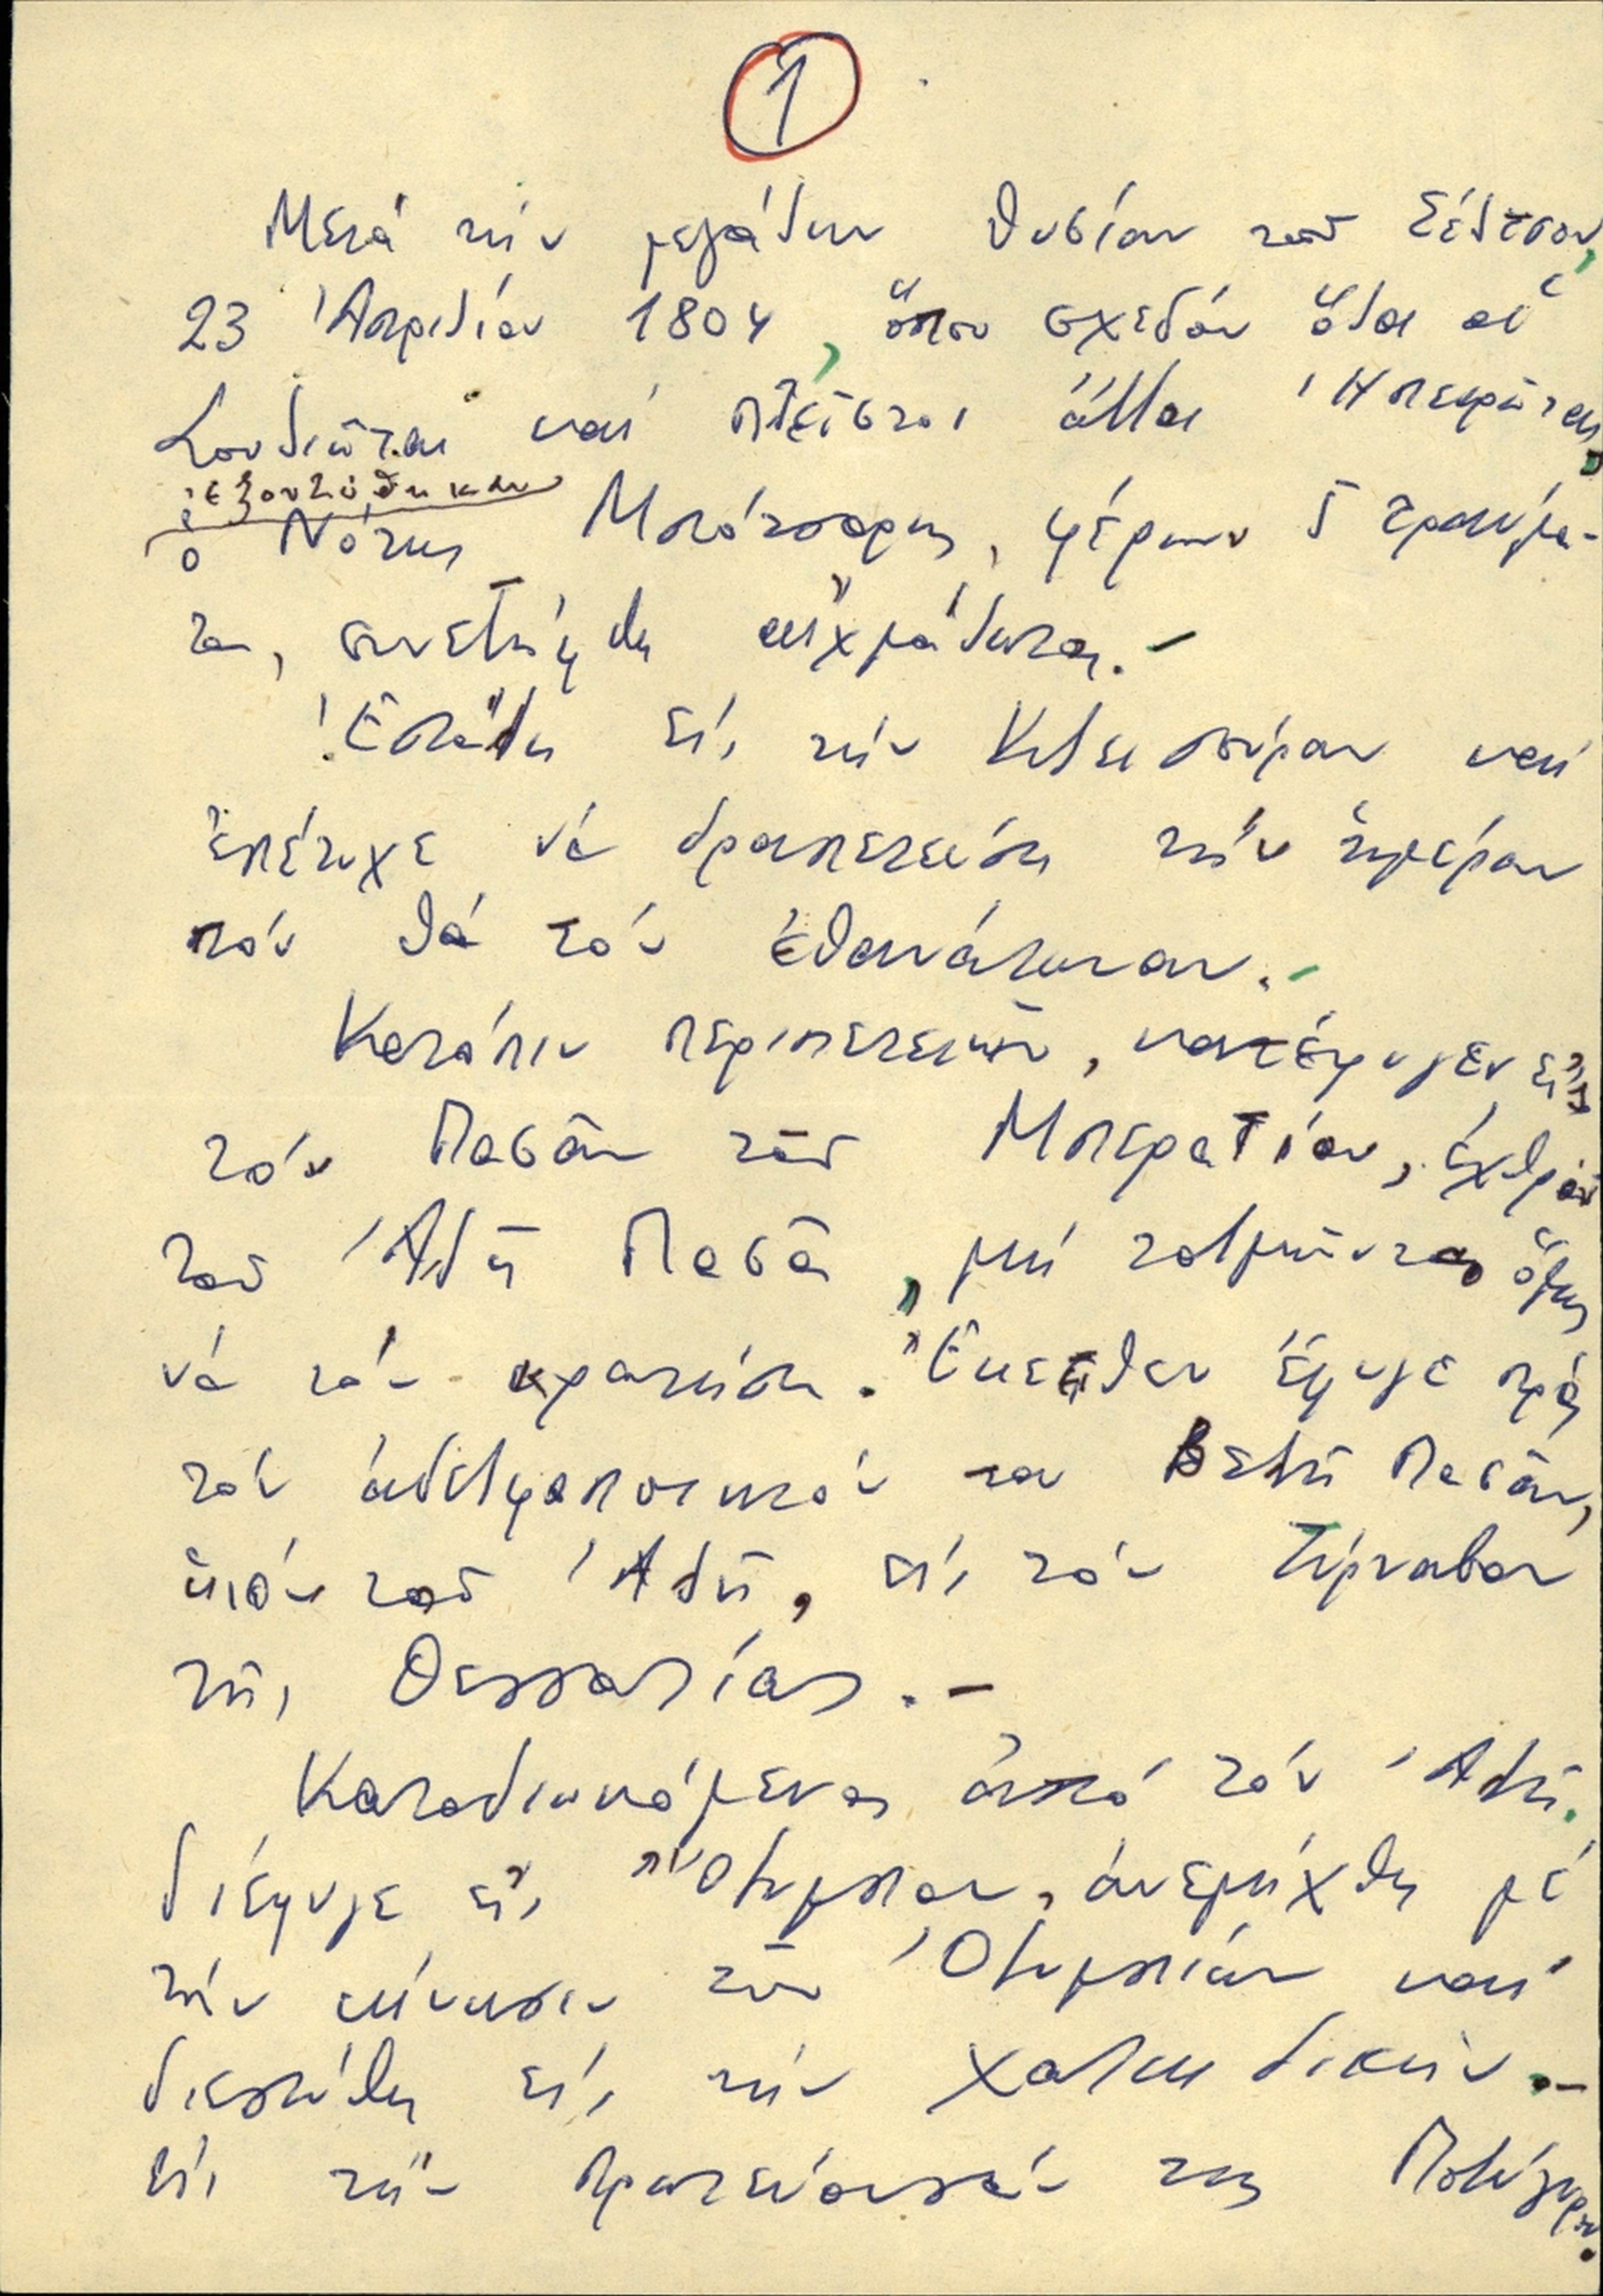 1
Μετά τήν μεγάλην θυσίαν τοῦ Σέλτσου,
23 Ἀπριλίου 1804, ὅπου σχεδόν ὅλοι οἱ
Σουλιῶται καί πλεῖστοι ἄλλοι Ἠπειρῶται,
ἐξοντώθηκαν
ὁ Νότης Μπότσαρης, φέρων 5 τραύμα-
τα, συνελήφθη αἰχμάλωτος.-
Ἐστάλη εἰς τήν Κλεισούραν καί
ἐπέτυχε νά δραπετεύση τήν ἡμέραν
πού θά τόν ἐθανάτωναν.-
Κατόπιν περιπετειῶν, κατέφυγεν εἰς
τόν Πασᾶν τοῦ Μπερατίου, ἐχθρόν
τοῦ Ἀλῆ Πασᾶ, μή τολμῶντος ὅμως
νά τόν κρατήση. Ἐκεῖθεν ἔφυγε πρός
τόν ἀδελφοποιητόν του Βελῆ Πασᾶν,
υἱόν τοῦ Ἀλῆ, εἰς τόν Τύρναβον
τῆς Θεσσαλίας.-
Καταδιωκόμενος ἀπό τόν Ἀλῆ.
διέφυγε εἰς Ὄλυμπον, ἀνεμίχθη μέ
τήν κίνησιν τῶν Ὀλυμπίων καί
διεσώθη εἰς τήν Χαλκιδικήν.-
εἰς τήν πρωτεύουσάν της Πολύγυρον.